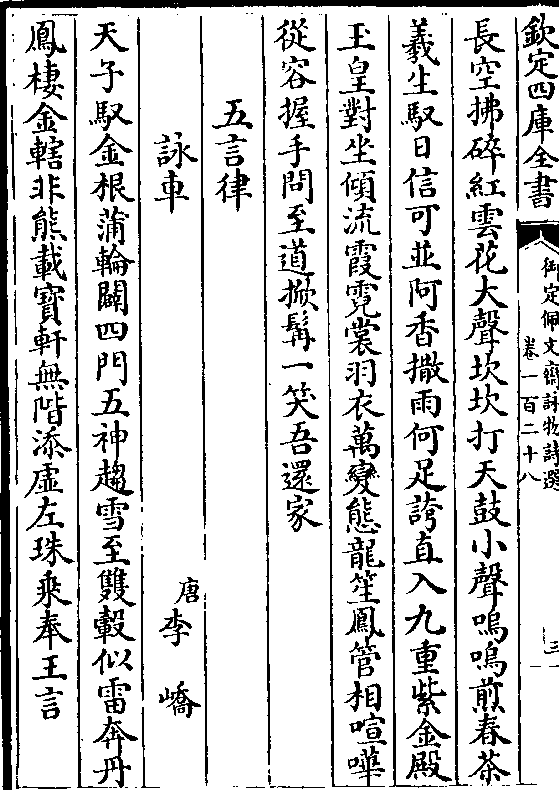 欽定四庫全書
御定佩文齋詠物詩選
卷一百二十八
三
長空拂碎紅雲花大聲坎坎打天鼓小聲嗚嗚煎春茶
羲生馭日信可並阿香撒雨何足誇直入九重紫金殿
玉皇對坐傾流霞霓裳羽衣萬變態龍笙鳳管相喧嘩
從容握手問至道掀髯一笑吾還家
五言律
詠車
唐李嶠
天子馭金根蒲輪闢四門五神趨雪至雙轂似雷奔丹
鳳棲金轄非熊載寶軒無階添虛左珠乘奉王言